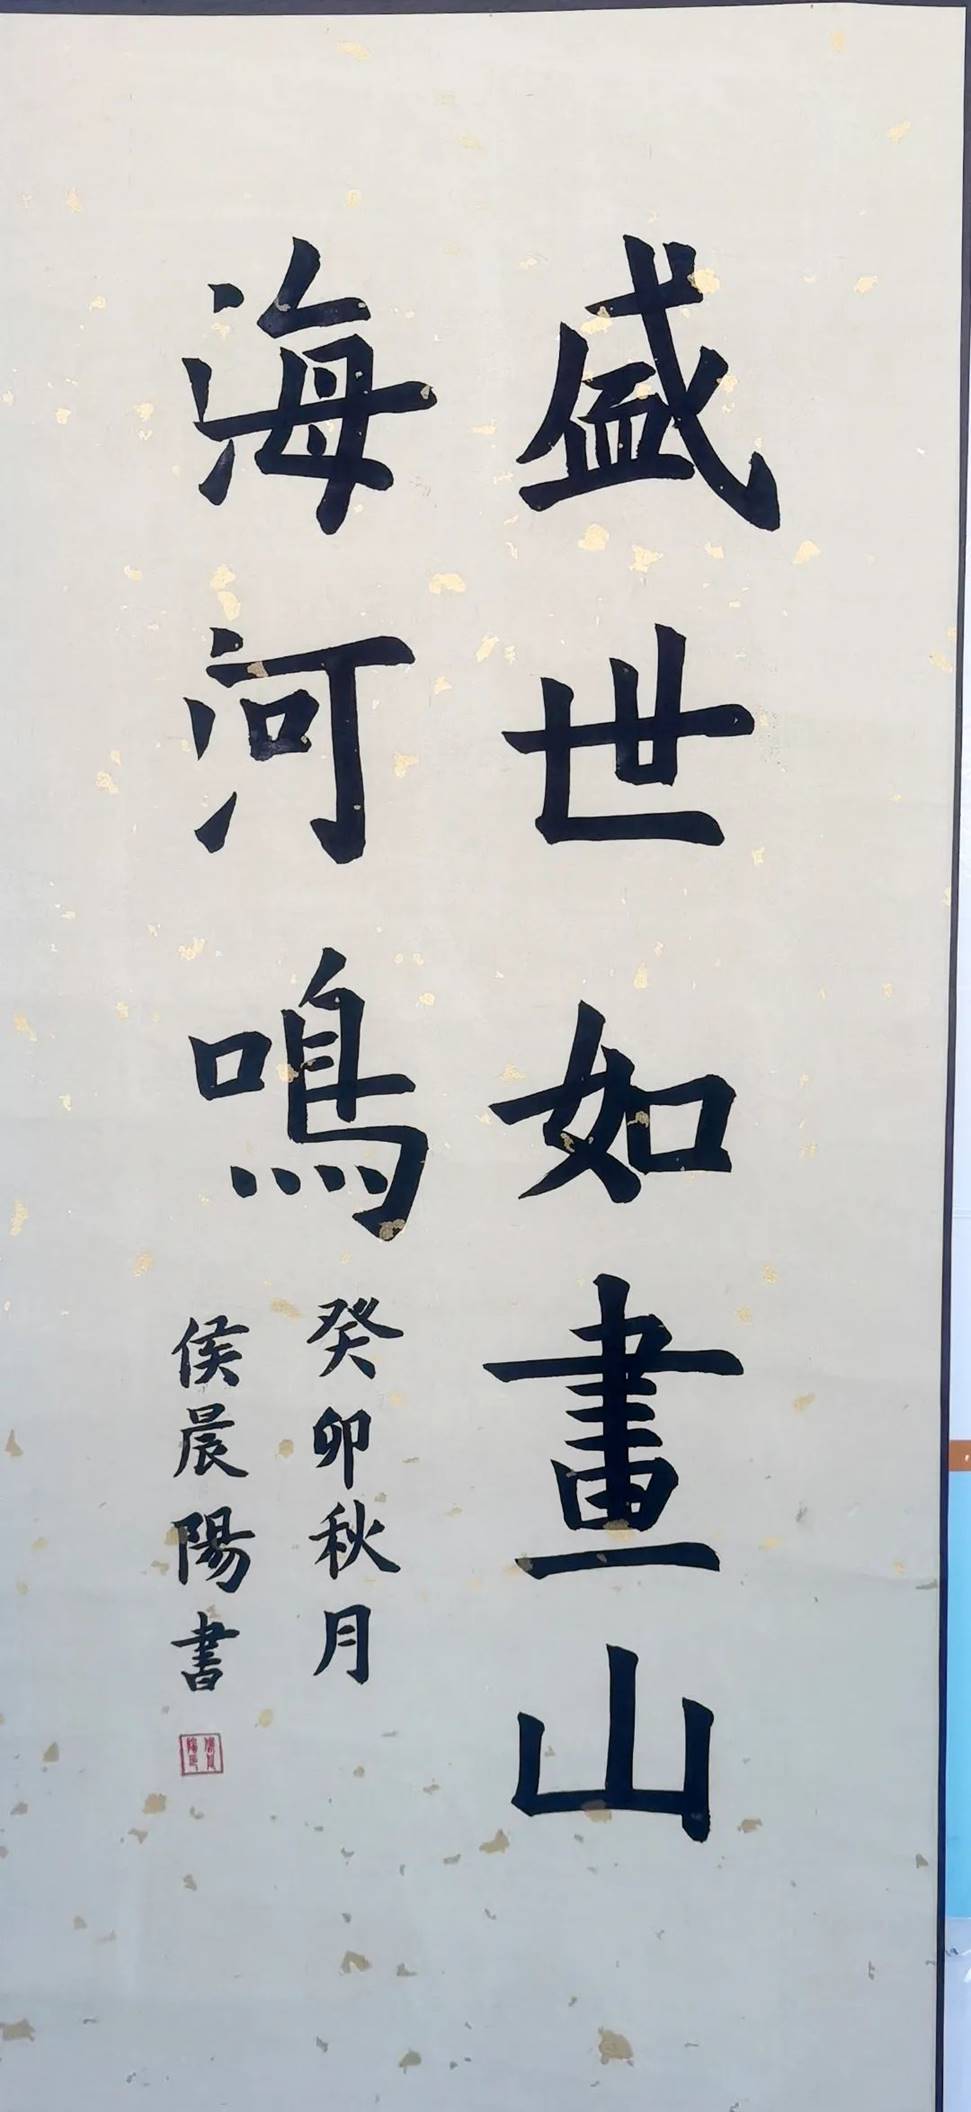 盛世如畫山
海河鳴
癸卯秋月
侯晨陽書